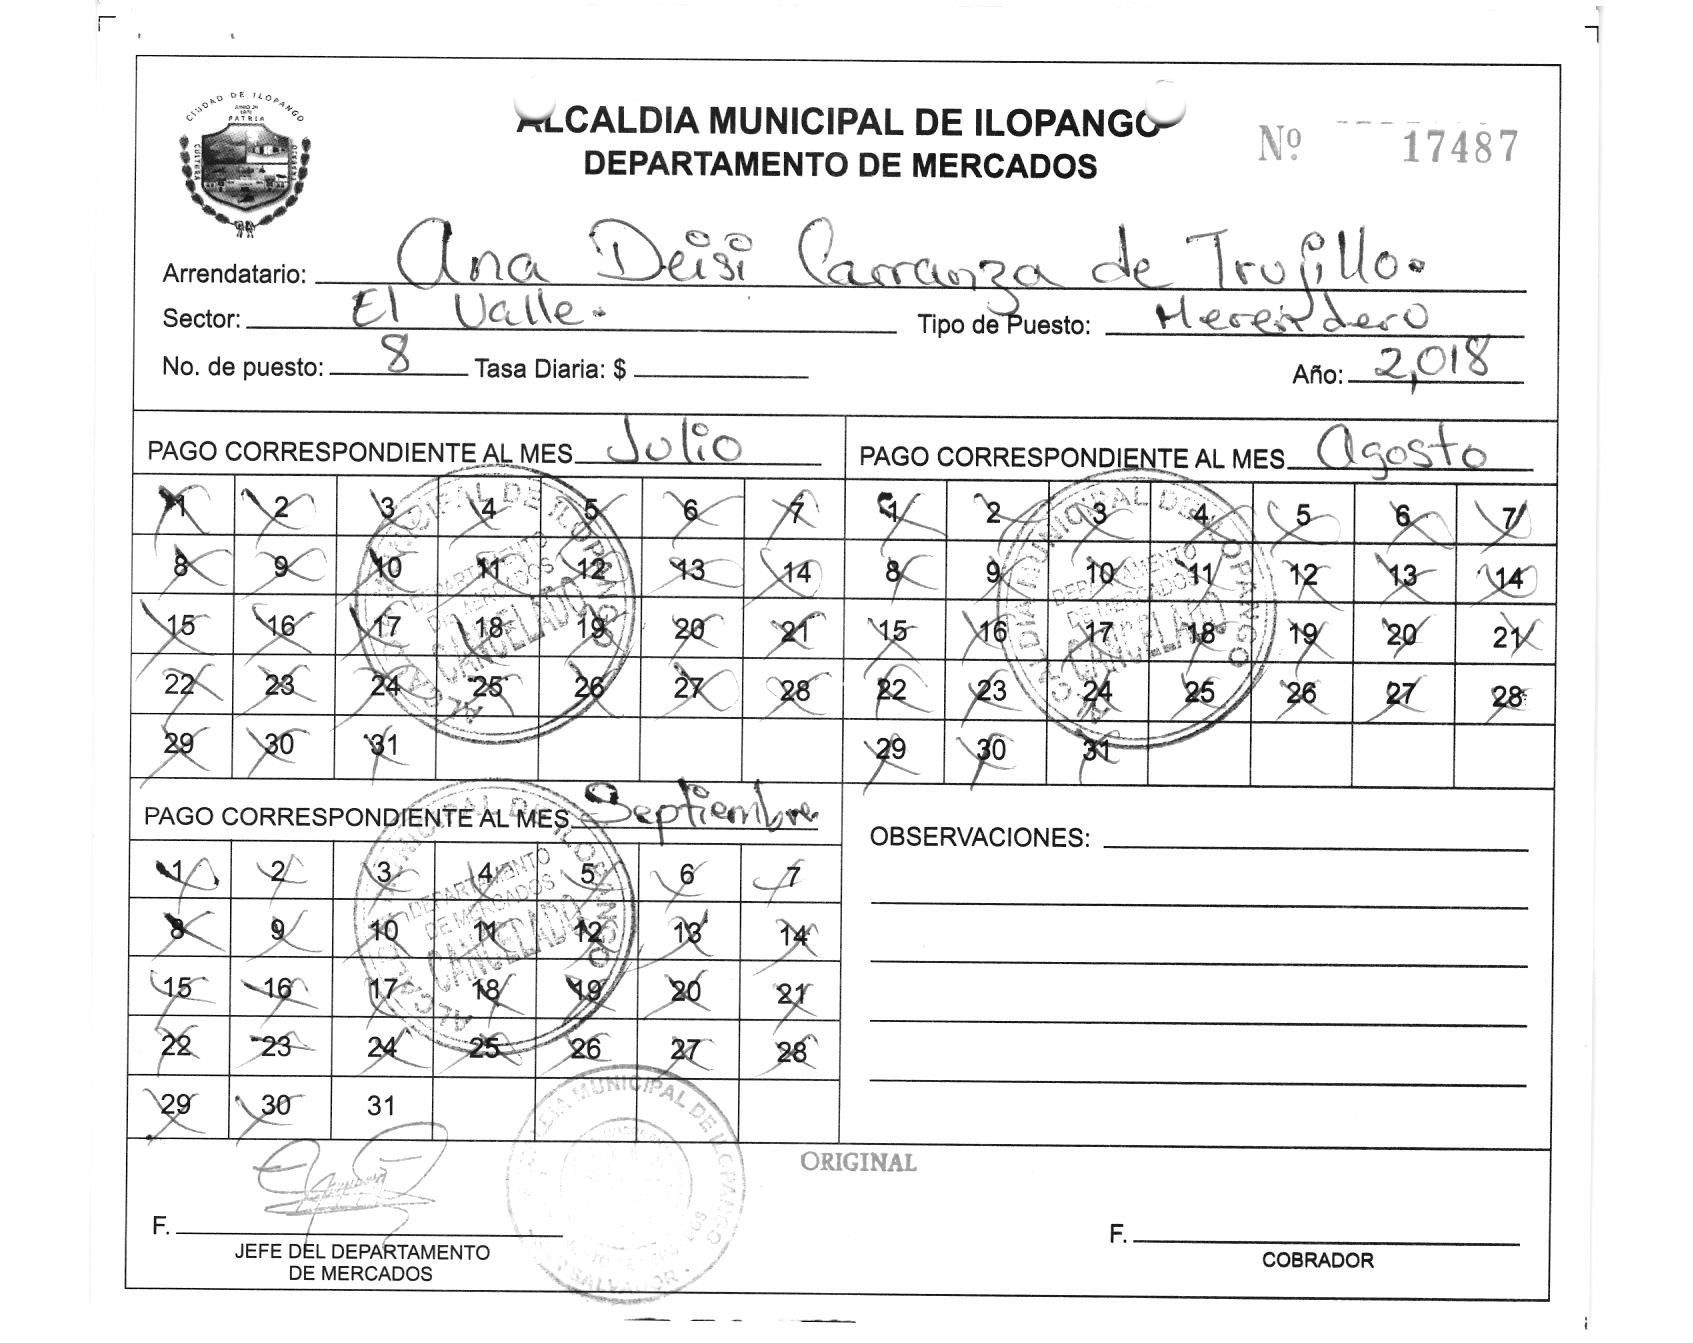 CIUDAD DE ILOPANGO
PATRIA
CULTURA
ALCALDIA MUNICIPAL DE ILOPANGO
DEPARTAMENTO DE MERCADOS
Nº 17487
Arrendatario: Ana Deisi Carranza de Trujillo.
Sector: El Valle. Tipo de Puesto: Merendero
No. de puesto: 8 Tasa Diaria: $ Año: 2,018
PAGO CORRESPONDIENTE AL MES Julio
1 2 3 4 5 6 7
8 9 10 11 12 13 14
15 16 17 18 19 20 21
22 23 24 25 26 27 28
29 30 31
ALCALDIA MUNICIPAL DE ILOPANGO
DEPARTAMENTO
DE MERCADOS
CANCELADO
PAGO CORRESPONDIENTE AL MES Agosto
1 2 3 4 5 6 7
8 9 10 11 12 13 14
15 16 17 18 19 20 21
22 23 24 25 26 27 28
29 30 31
ALCALDIA MUNICIPAL DE ILOPANGO
DEPARTAMENTO
DE MERCADOS
CANCELADO
PAGO CORRESPONDIENTE AL MES Septiembre
1 2 3 4 5 6 7
8 9 10 11 12 13 14
15 16 17 18 19 20 21
22 23 24 25 26 27 28
29 30 31
ALCALDIA MUNICIPAL DE ILOPANGO
DEPARTAMENTO
DE MERCADOS
CANCELADO
OBSERVACIONES:
ORIGINAL
F.
JEFE DEL DEPARTAMENTO
DE MERCADOS
ALCALDIA MUNICIPAL DE ILOPANGO
SAN SALVADOR
F.
COBRADOR